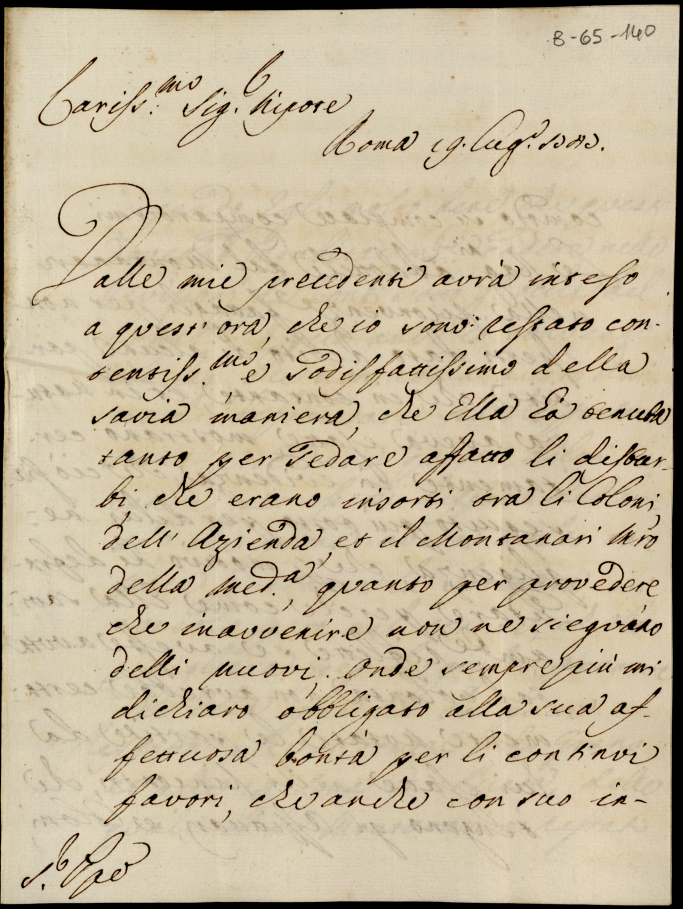 8-65-140
Cariss:mo Sig.r Nipote
Roma 19. Lug.o
Dalle mie precedenti avrà inteso
a quest' ora, che io sono restato con-
tentiss.mo e sodisfattissimo della
savia maniera, che Ella hà tenuta
tanto per sedare affatto li distur-
bi, che erano insorti tra li Coloni
dell' Azienda, et il Montanari Mro
della med.a, quanto per provedere
che inavvenire non ne sieguano
delli nuovi. Onde sempre più mi
dichiaro obbligato alla sua af-
fettuosa bontà per li continvi
favori, che anche con suo in-